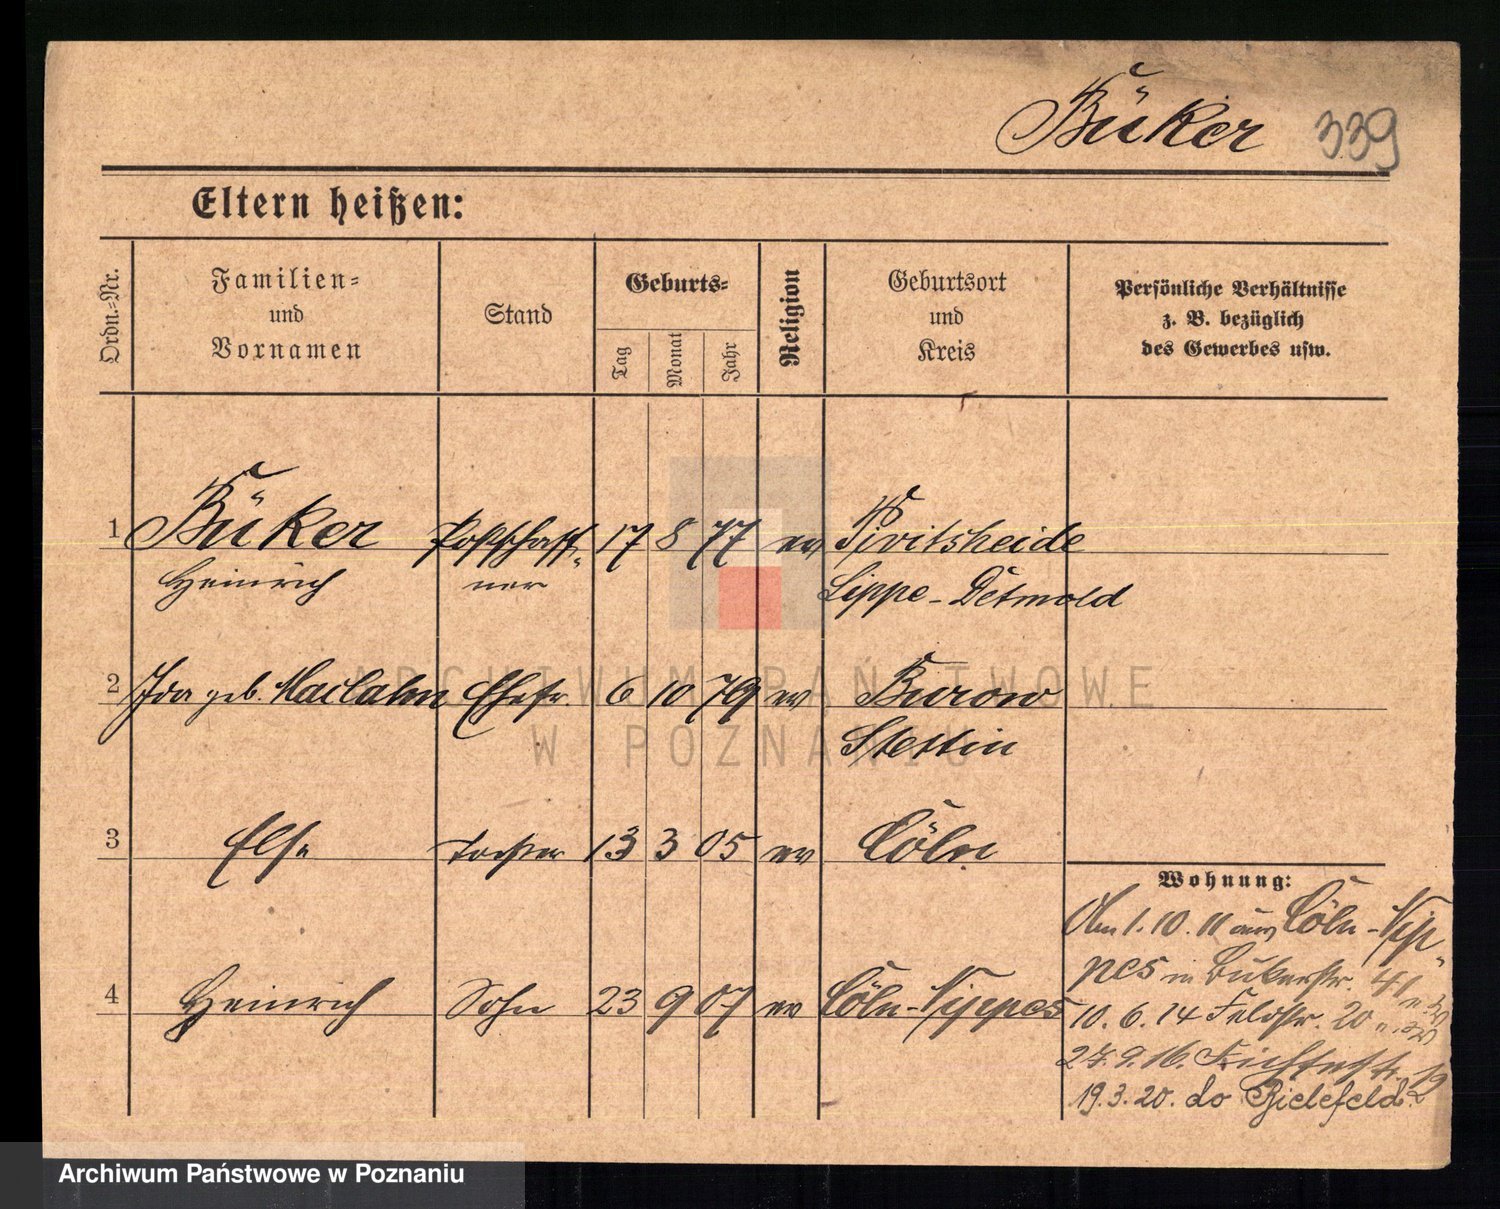 Büker 339
Eltern heißen:
Ordn.-Nr.
Familien-
und
Vornamen
Stand
Geburts-
Tag
Monat
Jahr
Religion
Geburtsort
und
Kreis
Persönliche Verhältnisse
z. B. bezüglich
des Gewerbes usw.
1 Büker Postschaff- 17 8 77 ev Pivitsheide
Heinrich ner Lippe-Detmold
2 Ida geb. Ehefr. 6 10 79 ev Burow
Stettin
3 Else Tochter 13 3 05 ev Cöln
4 Heinrich Sohn 23 9 07 ev Cöln-Nippes
Wohnung:
Am 1.10.11 aus Cöln-Nip-
pes in 41
10.6.14 Feldstr. 20
27.9.16. Fichtestr. 12
19.3.20. do Bielefeld.
ARCHIWUM PAŃSTWOWE
W POZNANIU
Archiwum Państwowe w Poznaniu